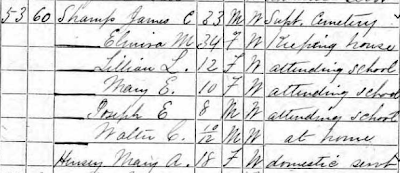 53 60 Shamp James C 33 M W Supt. Cemetery
Elmira M 34 F W Keeping house
Lillian L. 12 F W attending school
Mary E. 10 F W attending school
Joseph E 8 M W attending school
Walter C. 10/12 M W at home
Hensey Mary A. 18 F W domestic servt